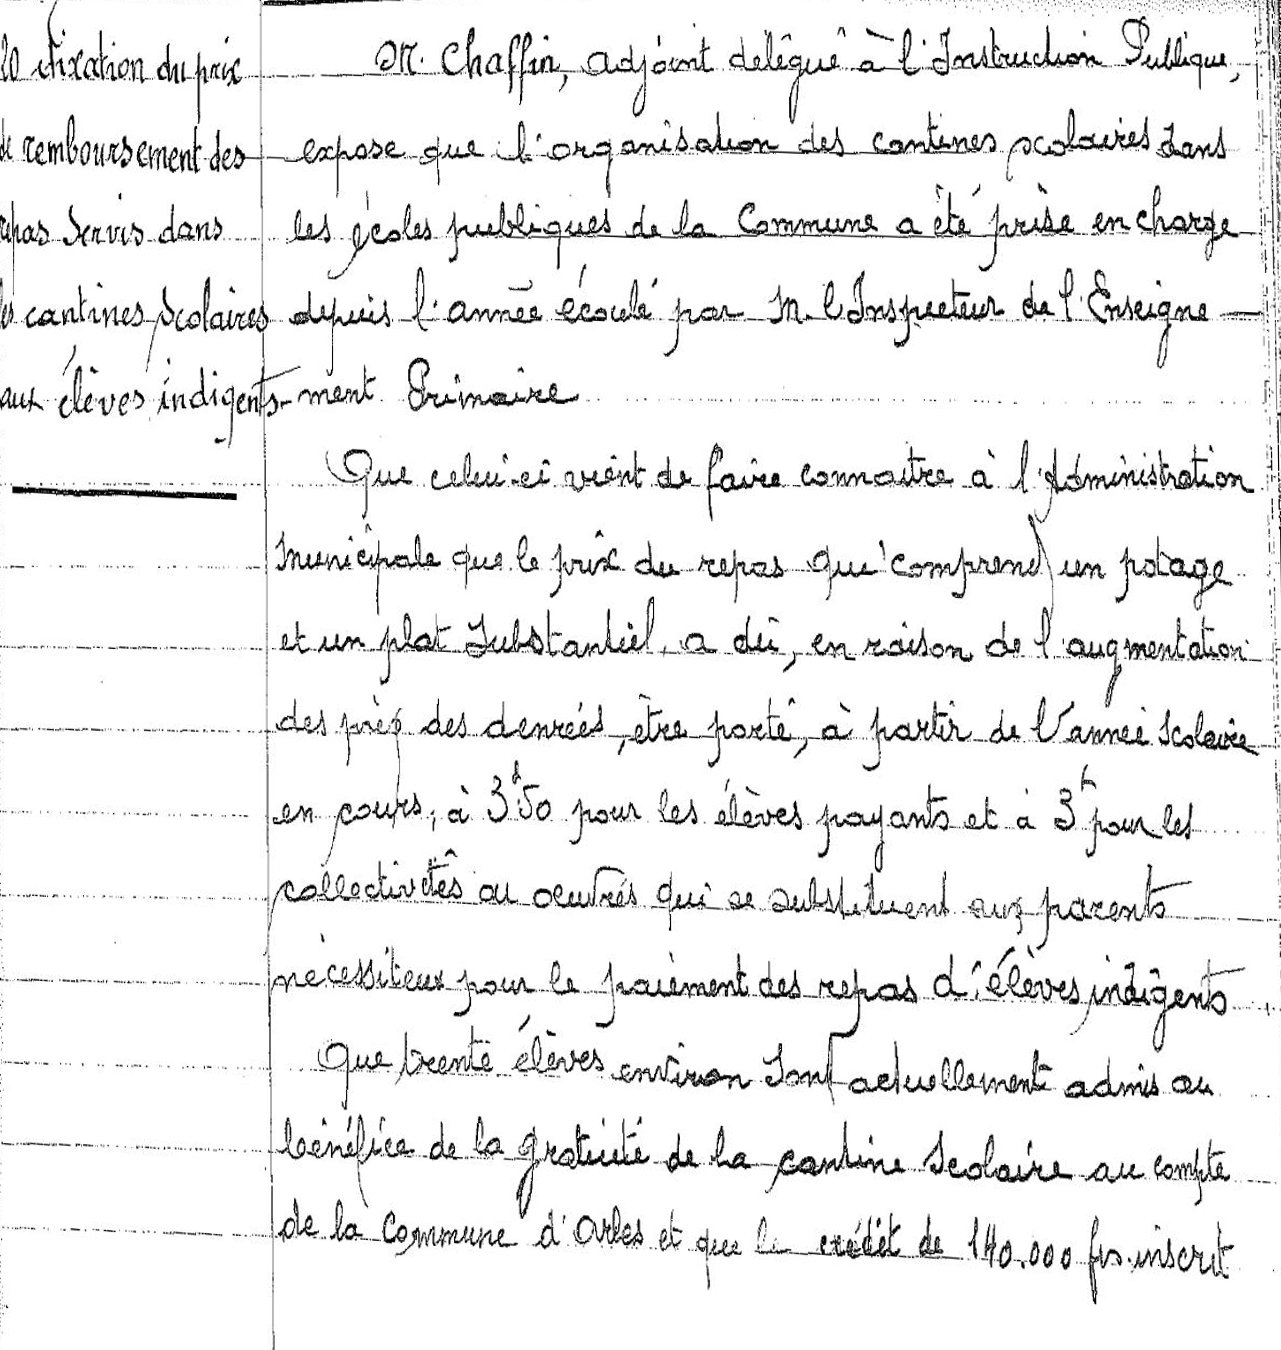 20 Fixation du prix
de remboursement des
repas servis dans
les cantines scolaires
aux élèves indigents.
M. Chaffin, adjoint délégué à l'Instruction Publique,
expose que l'organisation des cantines scolaires dans
les écoles publiques de la Commune a été prise en charge
depuis l'année écoulé par M. l'Inspecteur de l'Enseigne-
ment Primaire
Que celui-ci vient de faire connaitre à l'Administration
Municipale que le prix du repas qui comprend un potage
et un plat substantiel, a dû, en raison de l'augmentation
des prix des denrées, être porté, à partir de l'année scolaire
en cours, à 3f50 pour les élèves payants et à 3f pour les
collectivités ou oeuvres qui se substituent aux parents
nécessiteux pour le paiement des repas d'élèves indigents
Que trente élèves environ sont actuellement admis au
bénéfice de la gratuité de la cantine scolaire au compte
de la Commune d'Arles et que le crédit de 140.000 frs. inscrit